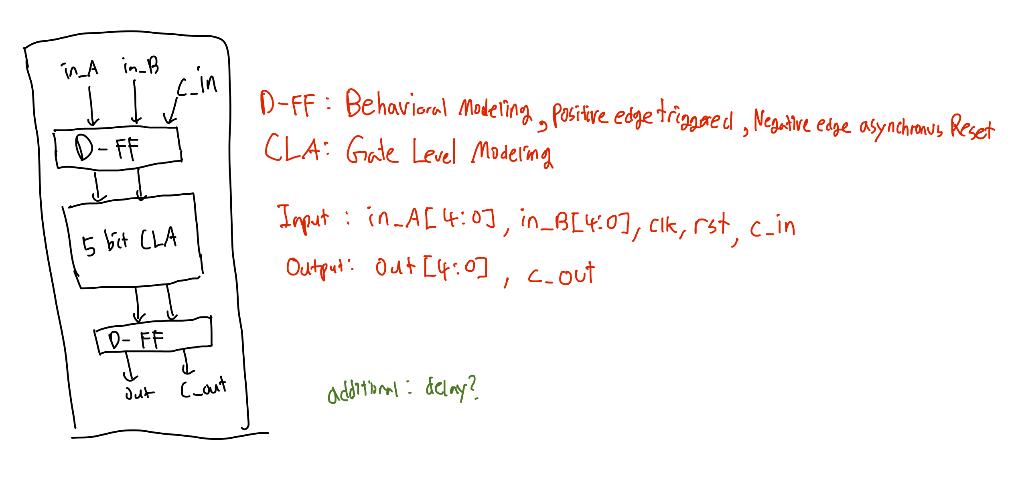 in_A in_B c_in
D-FF
5 bit CLA
D-FF
out c_out
D-FF: Behavioral Modeling, Positive edge triggered, Negative edge asynchronus Reset
CLA: Gate Level Modeling
Input: in_A[4:0], in_B[4:0], clk, rst, c_in
Output: out[4:0], c_out
additional: delay?